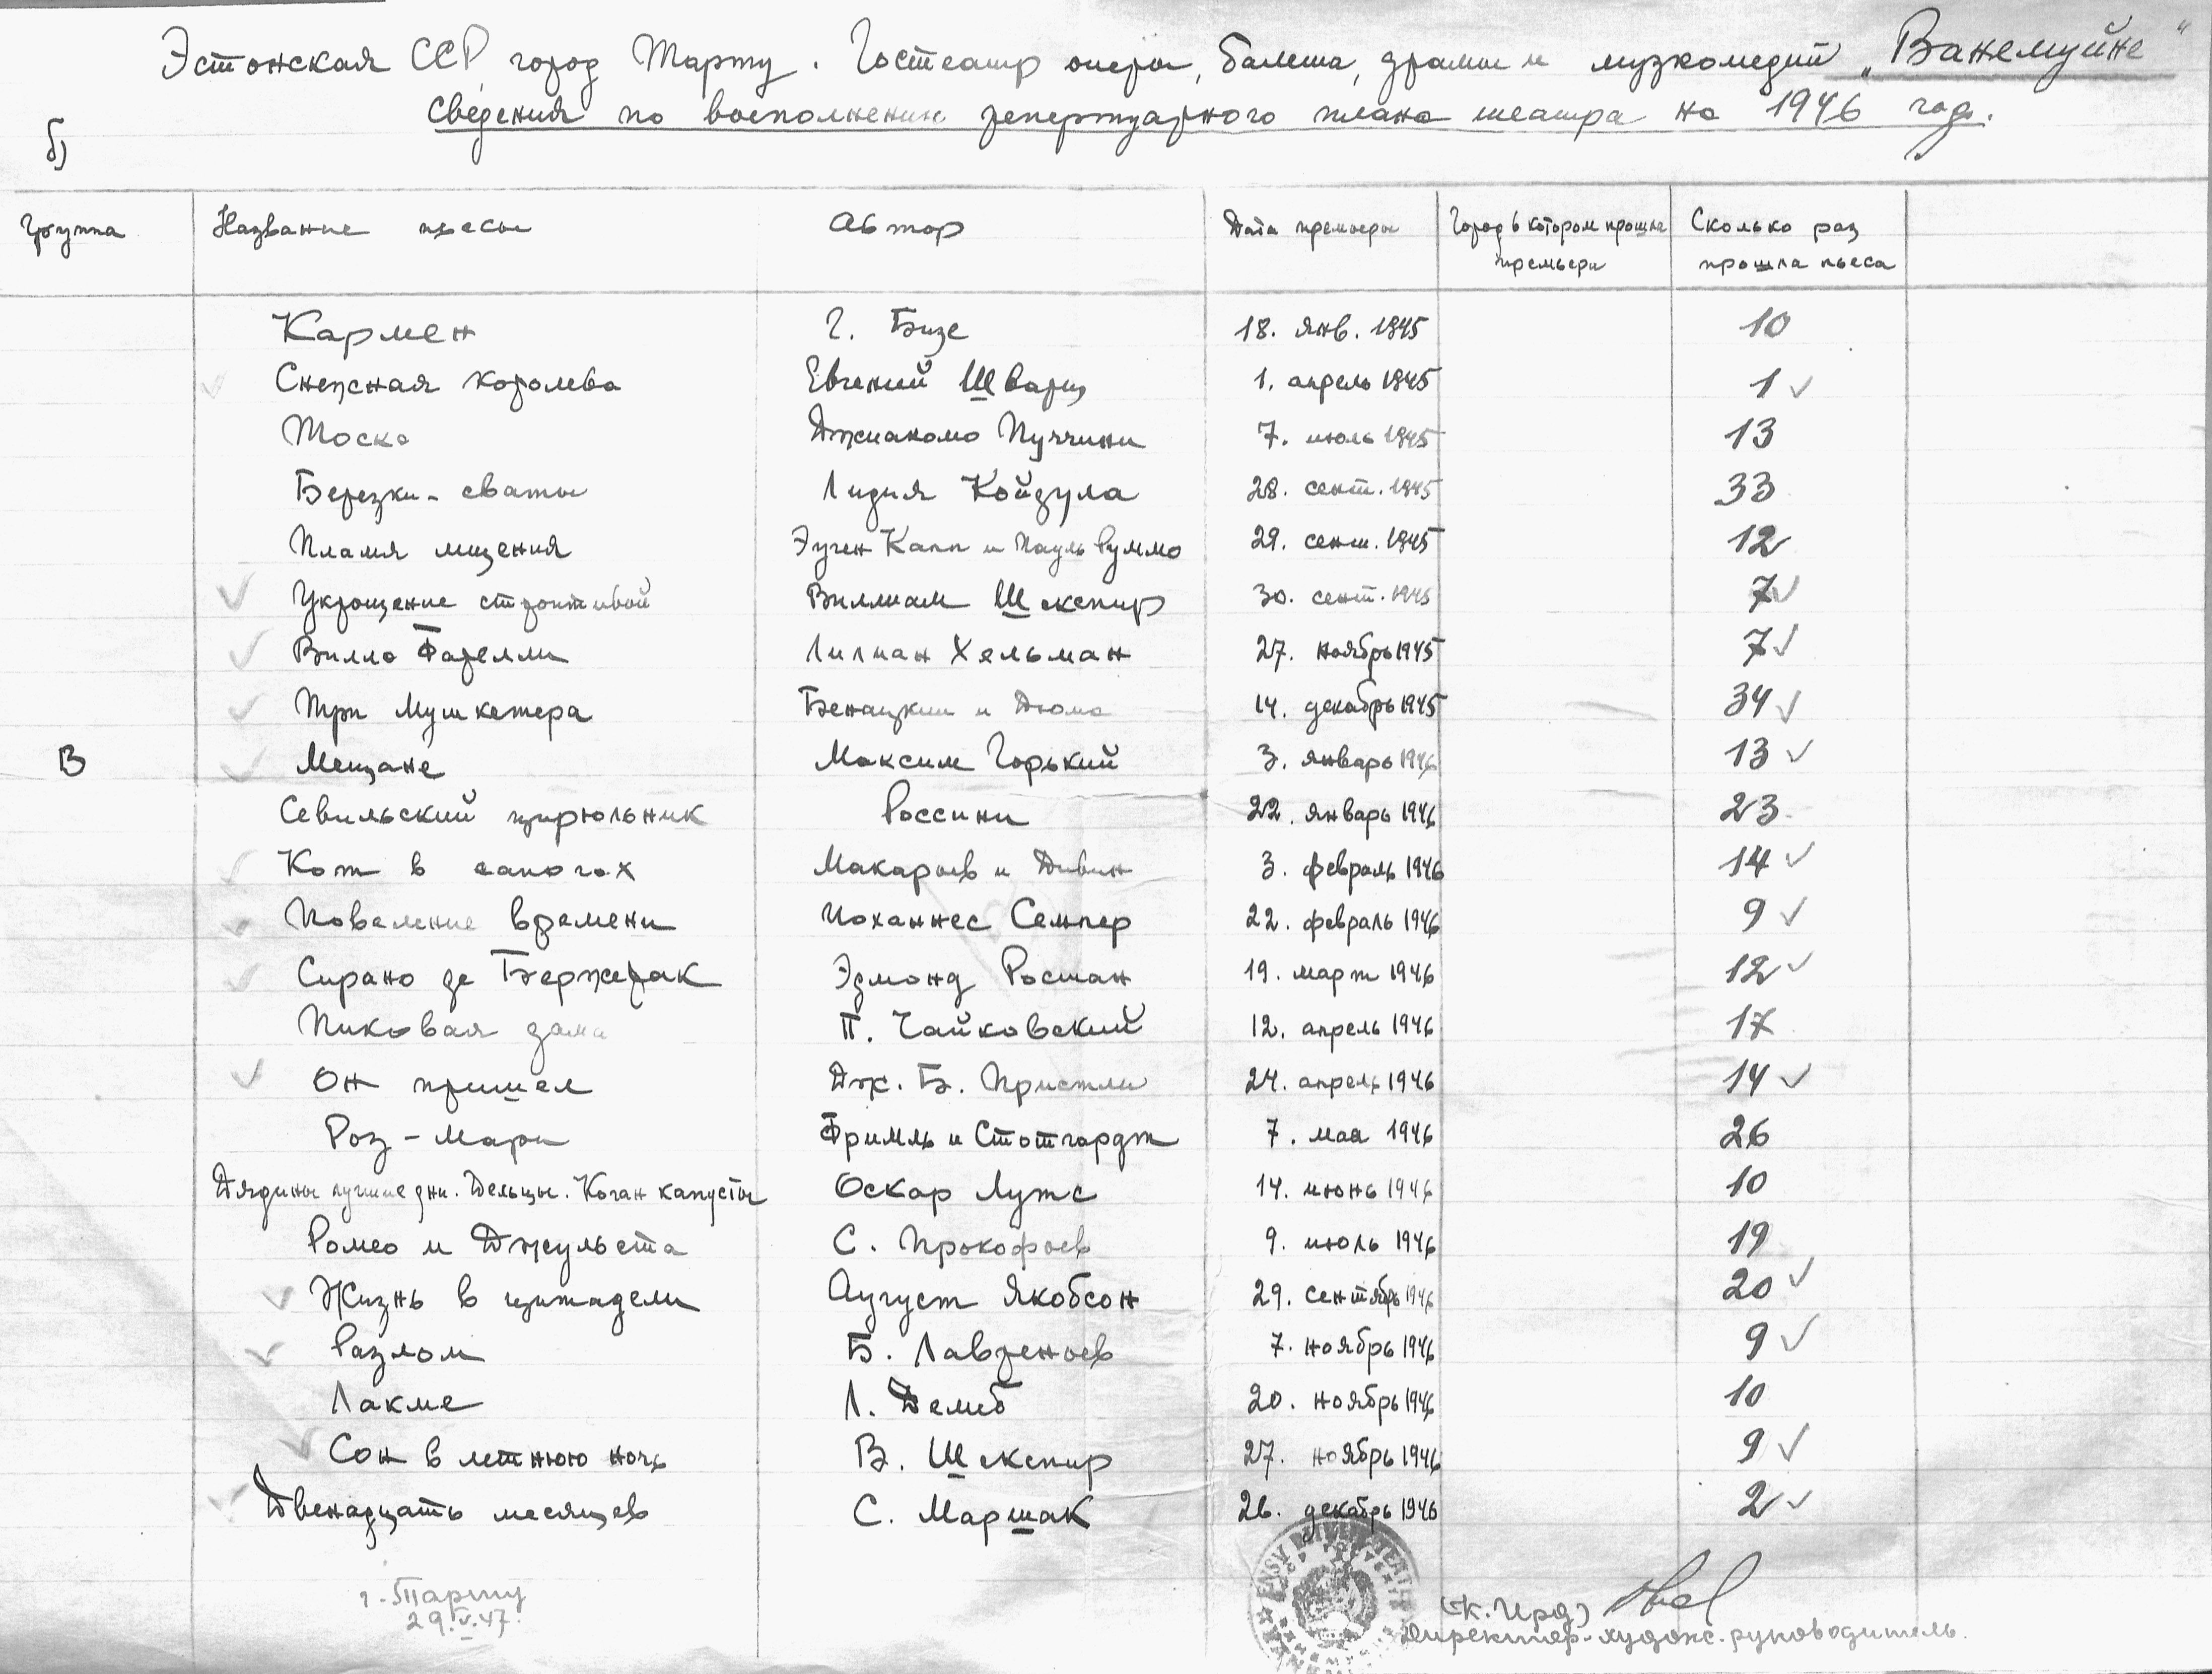 Эстонская ССР город Тарту. Гостеатр оперы, балета, драмы и музкомедий „Ванемуйне“
Сведения по восполнению репертуарного плана театра на 1946 год.
б)
Группа Название пьесы Автор Дата премьеры Город в котором прошла премьера Сколько раз прошла пьеса
Кармен Г. Бизе 18. янв. 1945 10
✓ Снежная королева Евгений Шварц 1. апрель 1945 1 ✓
Тоска Джиакомо Пуччини 7. июль 1945 13
Березки-сваты Лидия Койдула 28. сент. 1945 33
Пламя мщения Эуген Капп и Пауль Руммо 29. сент. 1945 12
✓ Укрощение строптивой Виллиам Шекспир 30. сент. 1945 7 ✓
✓ Вилло Фарелли Лилиан Хельман 27. ноябрь 1945 7 ✓
✓ Три Мушкетера Бенацкий и Дюма 14. декабрь 1945 34 ✓
В ✓ Мещане Максим Горький 3. январь 1946 13 ✓
Севильский цирюльник Россини 22. январь 1946 23
✓ Кот в сапогах Макарьев и Дивин 3. февраль 1946 14 ✓
✓ Повеление времени Иоханнес Семпер 22. февраль 1946 9 ✓
✓ Сирано де Бержерак ЭдмондРостан 19. март 1946 12 ✓
Пиковая дама П. Чайковский 12. апрель 1946 17
✓ Он пришел Дж. Б. Пристли 24. апрель 1946 14 ✓
Роз-Мари Фримль и Стотгардт 7. мая 1946 26
Дядины лучшие дни. Дельцы. Кочан капусты Оскар Лутс 14. июнь 1946 10
Ромео и Джульета С. Прокофьев 9. июль 1946 19
✓ Жизнь в цитадели Аугуст Якобсон 29. сентябрь 1946 20 ✓
✓ Разлом Б. Лавренев 7. ноябрь 1946 9 ✓
Лакме Л. Делиб 20. ноябрь 1946 10
✓ Сон в летнюю ночь В. Шекспир 27. ноябрь 1946 9 ✓
✓ Двенадцать месяцев С. Маршак 26. декабрь 1946 2 ✓
г. Тарту
29.V.47.
(К. Ирд)
Директор-художс. руководитель.